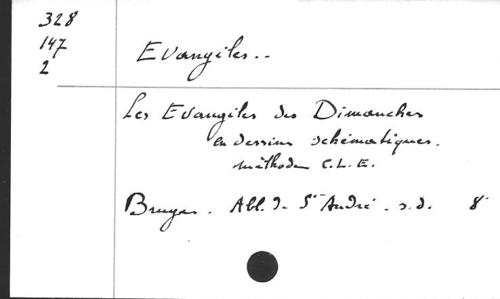 328
147
2
Evangiles..
Les Evangiles des Dimanches
en dessins schématiques.
méthode C.L.E.
Bruges. Abb. de St André. s.d. 8°